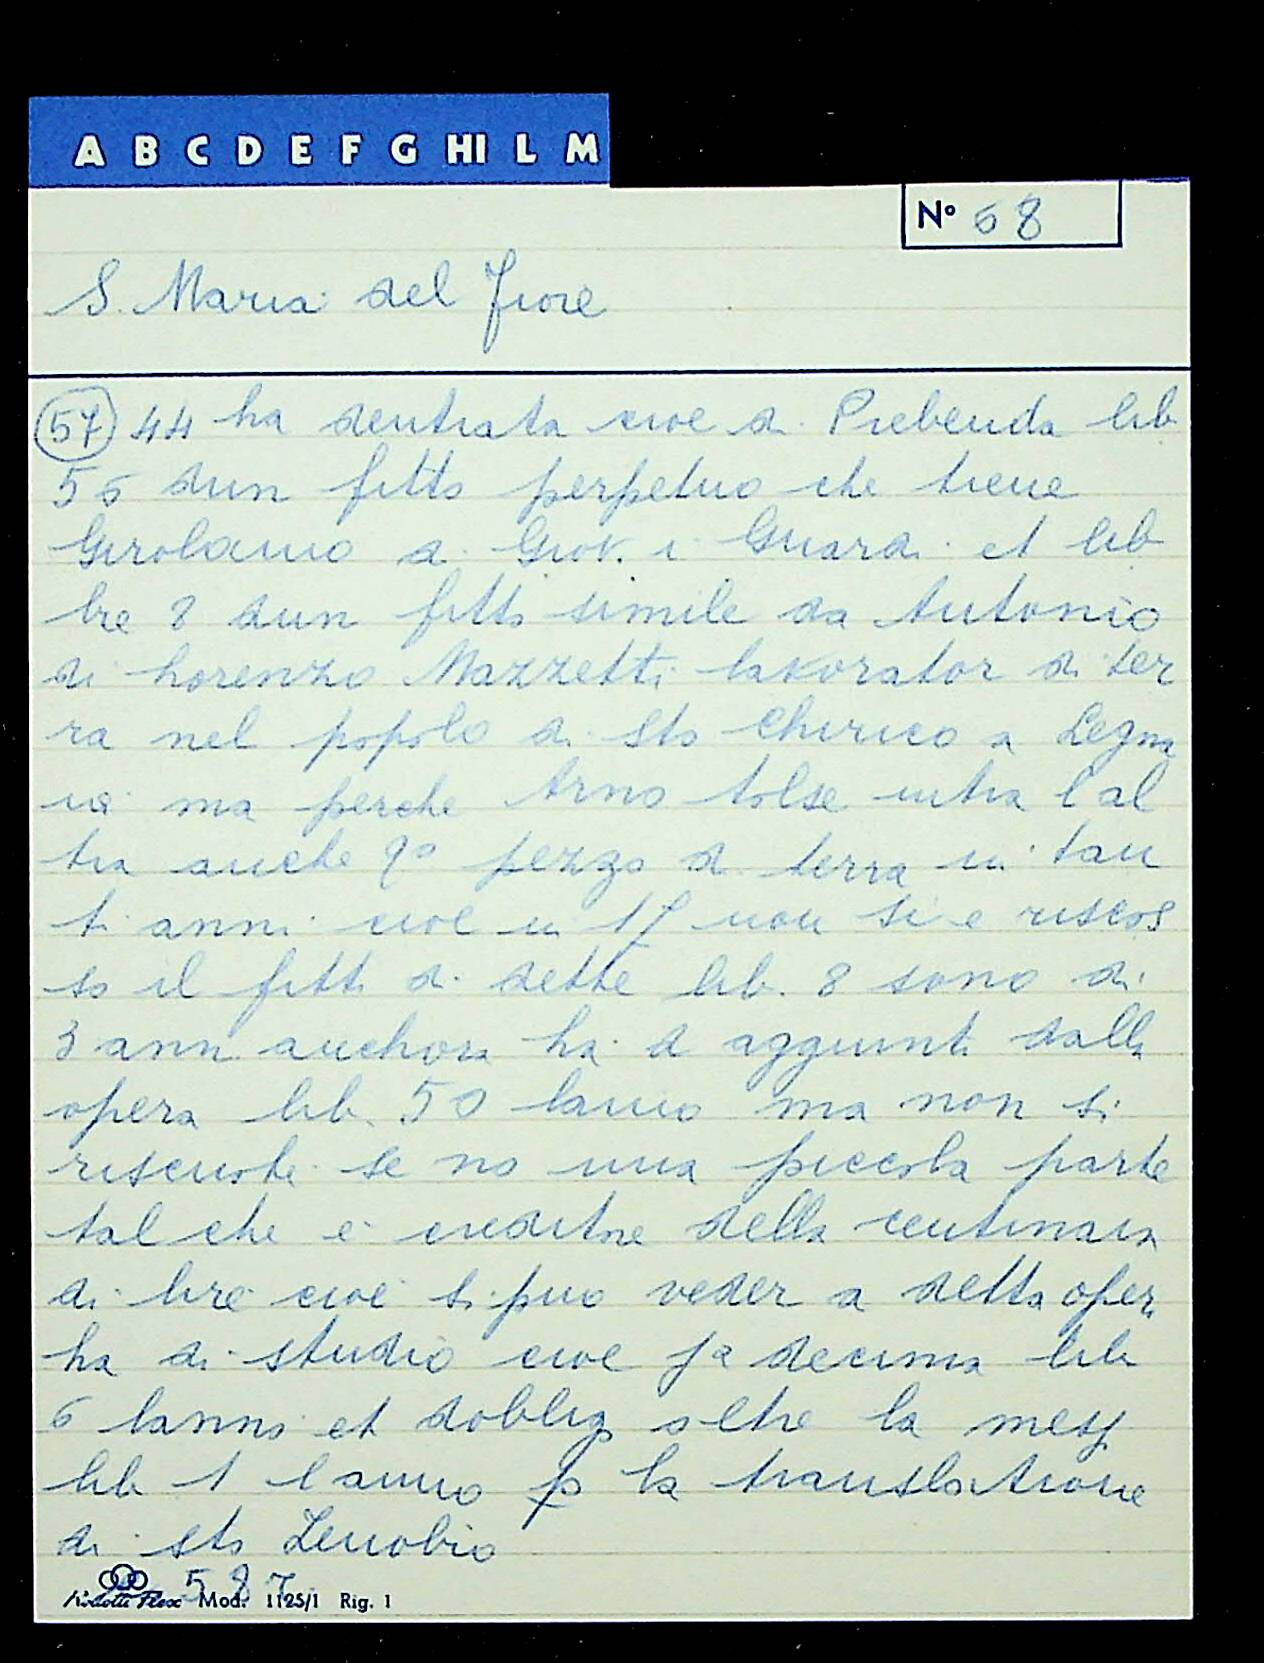 A B C D E F G HI L M
Nº 68
S. Maria del Fiore
57 44 ha dentrata cioe di Prebenda lib
56 dun fitto perpetuo che tiene
Girolamo di Giov. i Guardi et lib
bre 8 dun fitto simile da Antonio
di Lorenzo Mazzetti lavorator di ter
ra nel popolo di sto Chirico a Legna
ia ma perche Arno tolse intra l al
tra anche qº pezzo di terra in tan
ti anni cioe in 17 non si e riscos
so il fitto di dette lib. 8 sono di
3 anni anchora ha di aggiunti dalla
opera lib. 50 lanno ma non si
riscuote se no una piccola parte
tal che e creditore della centinaia
di lire cioe si puo veder a detta opera
ha di studio cioe pª decima lib
6 lanno et doblig oltre la mess
lib 1 l anno p la translatione
di sto Zenobio
587
Mod. 1125/1 Rig. 1